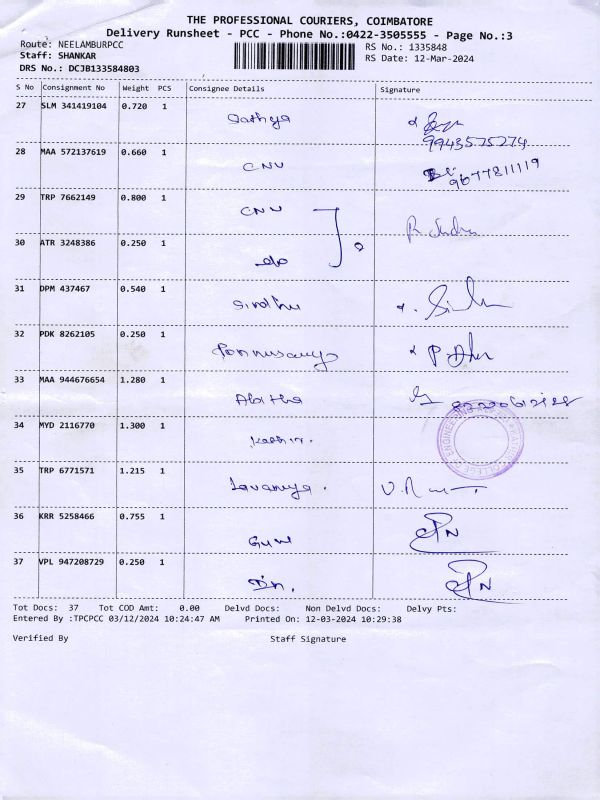 THE PROFESSIONAL COURIERS, COIMBATORE
Delivery Runsheet - PCC - Phone No.:0422-3505555 - Page No.:3
Route: NEELAMBURPCC
RS No.: 1335848
Staff: SHANKAR
RS Date: 12-Mar-2024
DRS No.: DCJB133584803
S No Consignment No Weight PCS Consignee Details Signature
27 SLM 341419104 0.720 1 Sathya
9943575274
28 MAA 572137619 0.660 1 CNU 9677811119
29 TRP 7662149 0.800 1 CNU
30 ATR 3248386 0.250 1 do
31 DPM 437467 0.540 1 Sindhu
32 PDK 8262105 0.250 1 Ponnusamy
33 MAA 944676654 1.280 1 Abitha
34 MYD 2116770 1.300 1
35 TRP 6771571 1.215 1 Lavanya
36 KRR 5258466 0.755 1
37 VPL 947208729 0.250 1
Tot Docs: 37 Tot COD Amt: 0.00 Delvd Docs: Non Delvd Docs: Delvy Pts:
Entered By :TPCPCC 03/12/2024 10:24:47 AM Printed On: 12-03-2024 10:29:38
Verified By Staff Signature